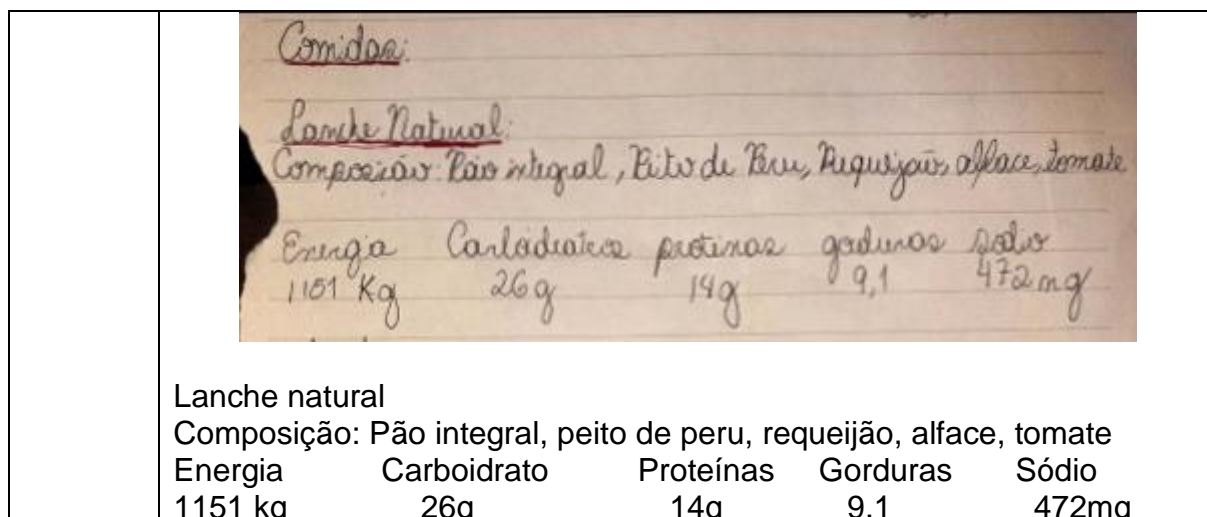 Comidas:
Lanche Natural:
Composição: Pão integral, Peito de Peru, Requeijão, alface, tomate
Energia Carboidratos protinas gorduras sodio
1151 Kg 26g 14g 9,1 472mg
Lanche natural
Composição: Pão integral, peito de peru, requeijão, alface, tomate
Energia Carboidrato Proteínas Gorduras Sódio
1151 kg 26g 14g 9,1 472mg